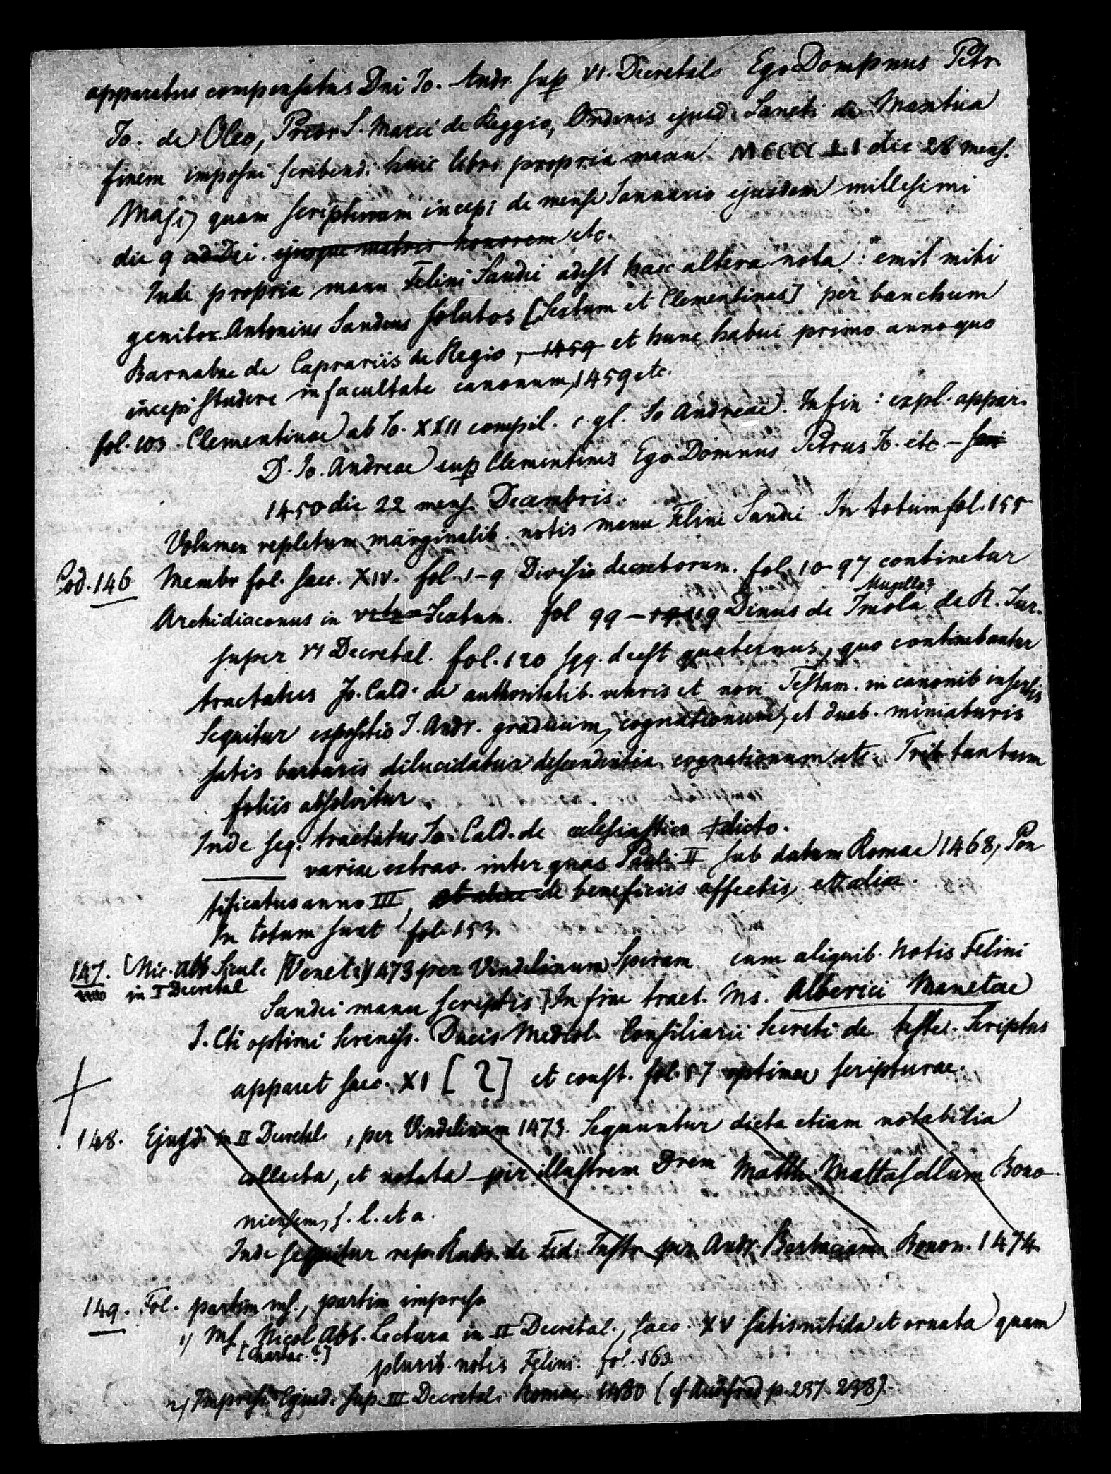 apparatus compensatus Dni Jo. Andr. sup VI. Decretal. Ego Dompnus Petr.
Jo. de Oleo, Prior S. Marci de Reggio, Ordinis ejusd. Sancti de Mantua
finem imposui scribend. huic libro propria manu MCCCC LI die 28 mens.
Maji, quam scripturam incepi de mense Jannuario ejusdem millesimi
die 9 ad Dei ejusque matris honorem etc.
Inde propria manu Felini Sandei adest haec altera nota: emit mihi
genitor Antonius Sandeus solutos [Sextum et Clementinas] per banchum
Barnabae de Caprariis de Regio, 1459 et hunc habui primo anno quo
incepi studere in facultate canonum, 1459 etc.
fol. 103. Clementinae ab Jo. XXII compil. c. gl. Jo Andreae. In fin: expl. appar.
D. Jo. Andreae sup Clementinis Ego Domnus Petrus Jo. etc –
1450 die 22 mens. Decembris.
Volumen repletum marginalib. notis manu Felini Sandei In totum fol. 155
Cod. 146 Membr fol. saec. XIV. fol. 1-9 Divisio decretorum. fol. 10-97 continetur
Mugello?
Archidiaconus in Sextum. fol 99 – 119 Dinus de Imola de R. Jur.
super VI Decretal. fol. 120 sqq. deest quaternus, quo continebantur
tractatus Jo. Cald. de authoritatib. veteris et novi Testam. in canonib insertis
Sequitur expositio J. Andr. graduum, cognationum, et duab. miniaturis
satis barbaris dilucidatur descendentia cognationum etc Trib tantum
foliis absolvitur
Inde seq. tractatus Jo. Cald. de ecclesiastico Idicto.
variae extrav. inter quas Pauli II sub datum Romae 1468, Pon
tificatus anno III, de beneficiis affectis, et aliae.
In totum sunt fol. 153.
147. [Nic. Abb. Sicul. [Venet.] 1473 per Vindelinum Spiram cum aliquib. notis Felini
in I Decretal
Sandei manu scriptis] In fine tract. ms. Alberici Manetae
J. Cti optimi Sereniss. Ducis Mediol. Consiliarii Secreti de testib. Scriptus
apparet saec. XI [?] et const. fol. 57 optimae scripturae.
148. Ejusd. in II Decretal., per Vindelinum 1473. Sequuntur dicta etiam notabilia
collecta, et notata per illustrem Drem Matth. Mattasellum Bono-
niensem, s. l. et a.
Inde sequitur rep. Rubr. de Fid. Instr. per Andr. Bonon. 1474
149. Fol. partim ms., partim impresso
1) Ms. Nicol. Abb. Lectura in II Decretal., saec. XV satis nitida et ornata quam
[Chartac.?]
plurib. notis Felini. fol. 163
2) Impress. Ejusd. sup III Decretal. Romae 1480 (cf Audifred p. 257. 298).